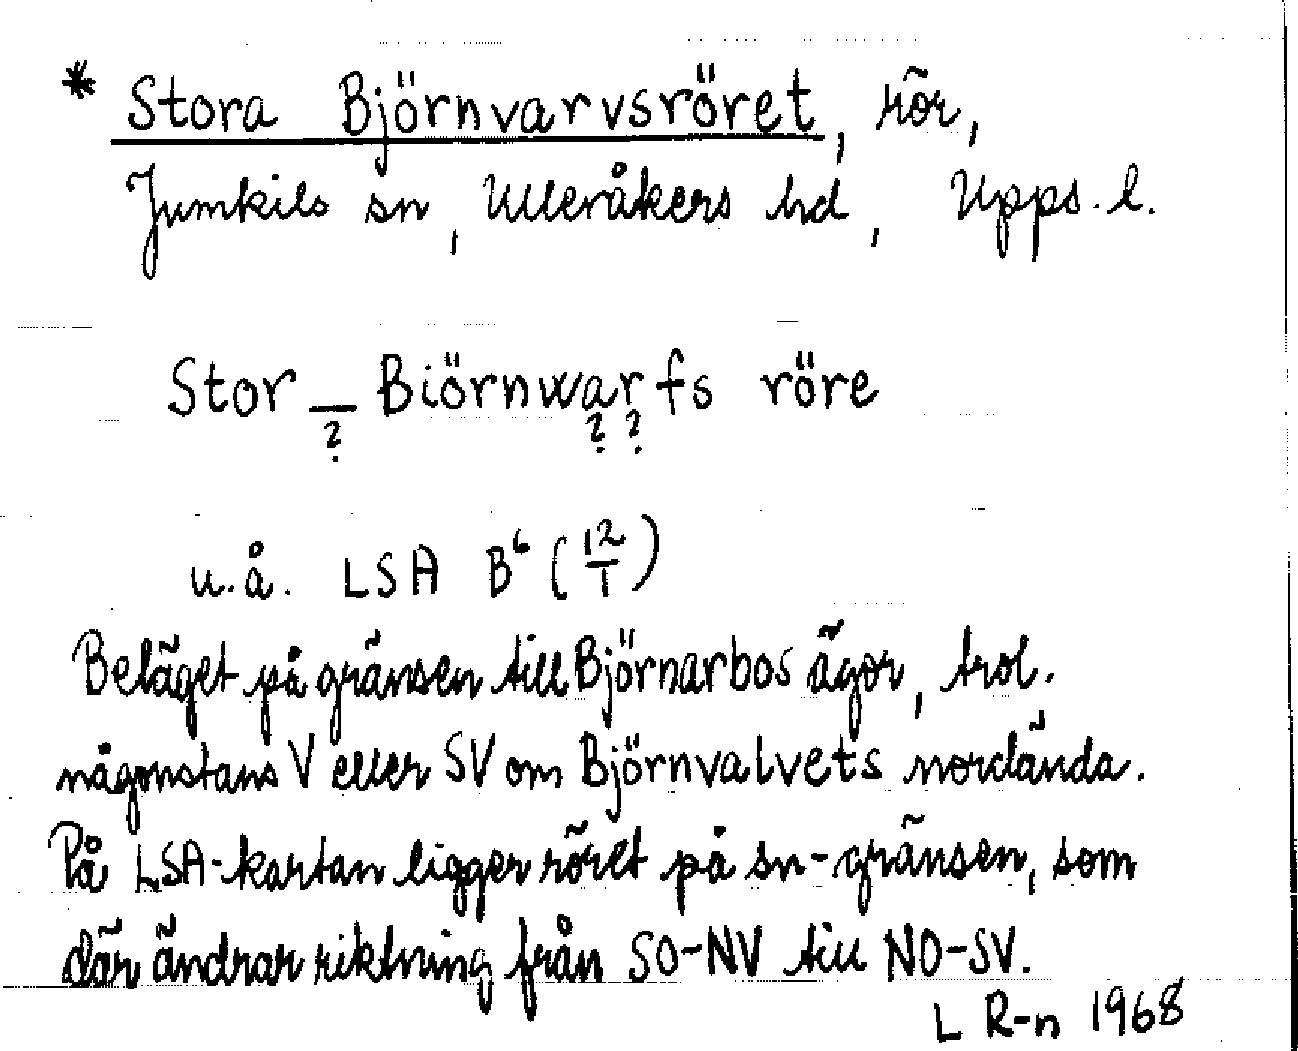 * Stora Björnvarvsröret, rör,
Jumkils sn, Ulleråkers hd, Upps. l.
Stor _ Biörnwarfs röre
? ? ?
u.å. LSA B⁶ (12/1)
Beläget på gränsen till Björnarbos ägor, trol.
någonstans V eller SV om Björnvalvets nordända.
På LSA-kartan ligger röret på sn-gränsen, som
där ändrar riktning från SO-NV till NO-SV.
L R-n 1968